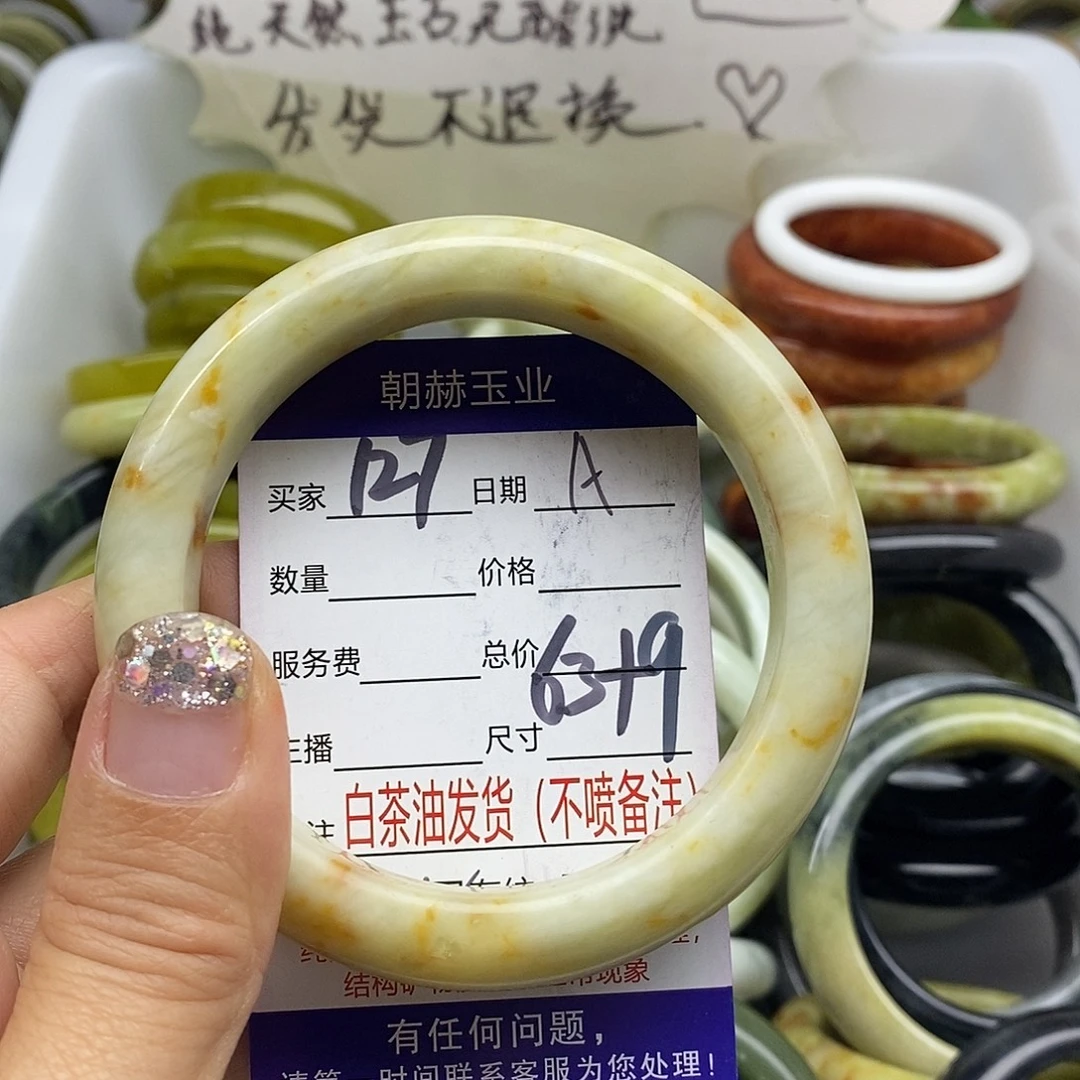 纯天然玉石无酸洗
发货不退换
朝赫玉业
买家 127 日期 A
数量 价格
服务费 总价 63+9
主播 尺寸
注 白茶油发货（不喷备注）
结构
现象
有任何问题，
时间联系客服为您处理！